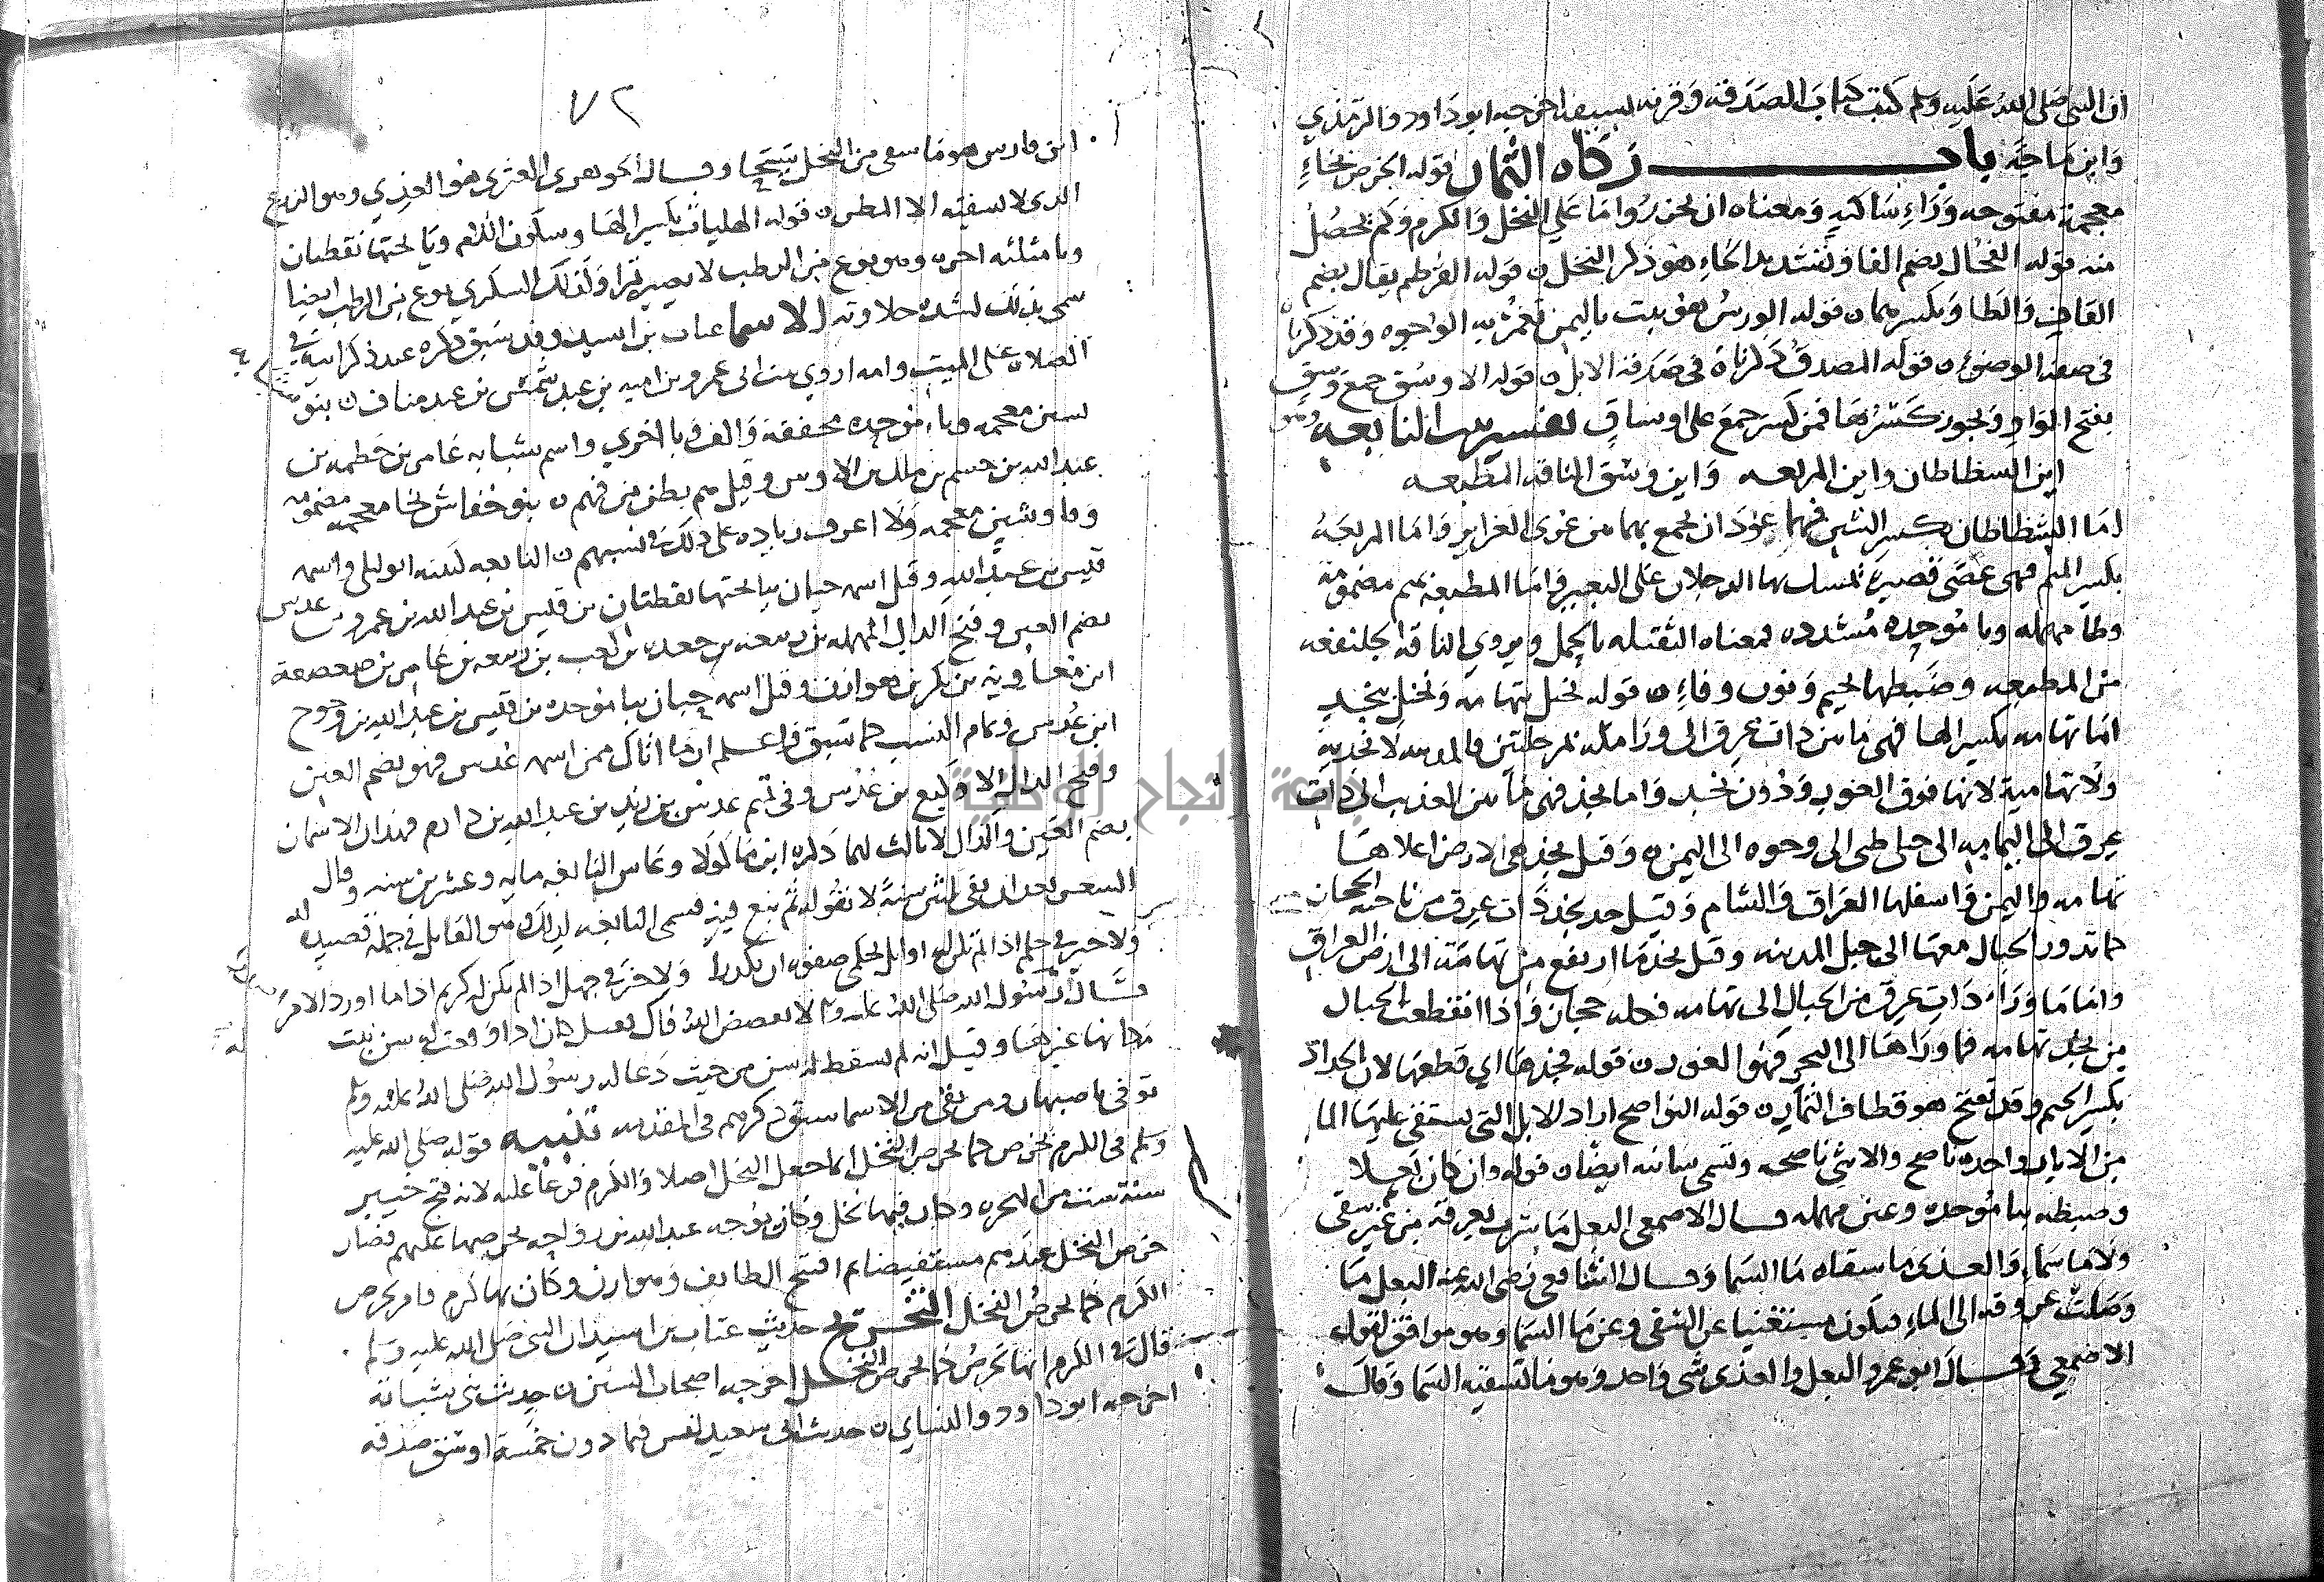 ان النبي صَلى اللهُ عَليه وسلم كتب كتابَ الصَدَقه وَقرنه بسيفه اخرجه ابو دَاود والترمذي
وَابن مَاجَه باب زكاه الثمار قوله الخرص بخاءٍ
معجمة مفتوحه وَرَاءٍ سَاكنهٍ وَمعناه ان يحزرُوا مَا عَلي النخل وَالكرم وَكم يحصُل
منه قوله الفحّال بضم الفا وَتشديد الحَاءِ هوَ ذكر النخل ن قوله القرطم يقال بضم
القافِ وَالطا وَبكسرهمان قوله الورسُ هوَ نبت باليمن تغمرّ به الوجوه وَقد ذكرناهُ
في صفه الوضوءِ ن قوله المصدق ذكرناهُ في صَدَقه الابل ن قوله الاوسُق جمع وَسق
بفتح الوَاوِ وَيجوز كسْرُهَا فمن كَسَر جمعَ على اوسَاقٍ تفسير بيت النابعه وهو
اين السظاظان واين المربعه وَاين وَسْق الناقه المطبعه
امَا الشظاظان بكسر الشين فهما عوْدَان يجمع بهما من عروَى الغراير وَامَا المربَعَهُ
بكسر الميم فهي عصًى قصيرَة تمسك بها الرجلان على البعير وَامَا المطبعه بميم مضمومه
وطا مهمله وبا مُوحده مُشدده فمعناه الثقيله بالحمل ويروى الناقه الجلنفعه
من المطبعه وضَبطها بجيم وَنون وفاءٍ ن قوله نخل تهامه وَنخل بنجد
امَا تهامه بكسر الها فهي مَا بين ذات عرق الى ورَا مكه بمرحلتين والمدينه لا نجديةٌ
وَلا تهامية لانها فوق الغور وَدُون نجد وَاما نجد فهى مَا بين العذيب الى ذاتِ
عِرق الى اليمامه الى جبلى طى الى وحوه الى اليمن وَقيل نجد هى الارض اعلاهَا
تهامه واليمن وَاسفلها العَراق وَالشام وَقيل حد نجد ذَات عِرق من ناحيه الحجاز
كما تدور الجبال معهَا الى جبل المدينه وَقيل نجد مَا ارتفع من تهامَة الى ارض العراقِ
وامَا مَا وَرَاءَ ذات عِرقٍ من الجبال الى تهامه فحله حجاز وَاذا انقطعت الجبال
من نجد تهامه فما ورَاهَا الى البحر فهوَ الغور ن قوله فجذهَا اي قطعهَا لان الجداد
بكسر الجيم وقد تفتح هو قطاف الثمار ن قوله النواضح اراد الابل التى يستقى عليهَا الما
من الآبار واحده ناضح والانثى ناضحه وتسمى سانيه ايضًا ن قوله وان كان بَعلا
وضبطه ببا مُوحده وعين مهمله قال الاصمعي البعل مَا شرب بعروقه من غير سقى
وَلا مَا سَمآء وَالعذى ما سقاه مَا السَما وَقال الشافعى رَضى الله عنه البعل مَا
وَصَلت عروقه الى الماء فيكون مستغنيا عن السقى وعن مَا السَما وهو موافق لقوله
الاصمعي وَقال ابو عمرو البعل والعذى شى وَاحد وَهو مَا تسقيه السَما وَقال
٧٢
ابن فارس هو مَا سقى من النخل سَيحا وقال الجوهرى العثرى هو العذِي وهو الزرع
الذى لا يسقيه الا المطر ن قوله الهلياث بكسر الهَا وسكون اللام ويَا تحتها نقطتان
وثا مثلثه اخره وهو نوع من الرطب لا يصير تمرا وَكذلك السكرى نوع من الرطب ايضا
سمى بذلك لشده حلاوته الاسما عتاب بن اسيد وقد سَبق ذكره عند ذكر ابيه في
الصلاه عَلى الميتِ وامه اروى بنت ابى عمرو بن اميه بن عبد شمْس بن عبد مناف ن بنو
بشين معجمه وبا موحده مخففه وَالف وبا اخرى واسم شبابه عَامر بن حَطمه بن
عبد الله بن جسم بن ملك بن الاوس وقيل هم بطن من فهم ن بنو خفاش بخا معجمه مضمومه
وفا وشين معجمه وَلا اعرف زياده على ذلكَ فى نسبهم ن النابعه كنيته ابو ليلى واسمه
قيس بن عبد اللهِ وقيل اسمه حيان بيا تحتها نقطتان بن قيس بن عبد الله بن عمرو بن عدس
بضم العين وفتح الدال المهمله بن ربيعه بن جعده بن كعب بن ربيعه بن عَامر بن صعصعة
ابن معَاوية بن بكر بن هوازن وقيل اسمه حبان ببا موحده بن قيس بن عبد الله بن وحوح
ابن عُدس وتمام النسب كما سَبق وَاعلم ان مَا اتاك ممن اسمه عُدس فهو بضم العين
وفتح الدال الا وَكيع بن عُدُس وفى تميم عدس بن زيد بن عبد الله بن دارم فهذان الاسمان
بضم العَين والدال لا ثالث لهما ذكره ابن مَاكولا وعَاش النابغه مايه وعشرين سنه وقال
الشعر بعد ان بقى ثلثين سنةً لا يقُوله ثم نبغ فيهِ فسمى النابغه لذلك وهو القايل في جمله قصيده له
وَلا خير في حلم اذا لم تكن له اوايل تحمى صفوه ان يكدرا وَلا خيرَ في جهل اذا لم يكن له كريم اذا ما اورد الامر
فقال رَسُول الله صَلى اللهُ عليه وسلم لا يفضض اللهُ فاك فقيل كان اذا وقعت له سن نبتت
مكانها غيرهَا وقيل انه لم يسقط له سن من حيث دَعا له رسُول الله صَلى اللهُ عليه وسلم
توفى باصبهان ومن بقى من الاسما سبق ذكرهم فى المقدمه تنبيه قوله صلى الله عليه
وسلم فى الكرم يخرص كما يخرص النخل انما جعل النخل اصلا وَالكرم فرعًا عليه لانه فتح خيبر
سنة ست من الهجره وكان فيها نخل وكان يوجه عبد الله بن رَواحه يخرصها عليهم فصَار
خرص النخل عندهم مستفيضا ثم افتتح الطايف وَهوازن وكان بها كَرم فامر بخرص
الكرم كما يخرصُ النخل التخريج حديث عتاب بن اسيد ان النبى صَلى الله عليه وسلم
قال فى الكرم انها تخرصُ كما يخرص النخل اخرجه اصحاب السنن ن حديث بنى شبابة
اخرجه ابو داود والنساي ن حديث ابى سعيد ليس فيما دون خمسَة اوسق صدقه